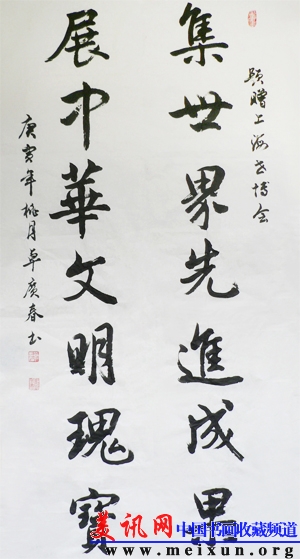 題贈上海世博会
集世界先進成果
展中華文明瑰寶
庚寅年桃月卓廣春书
美讯网 中国书画收藏频道
www.meixun.org